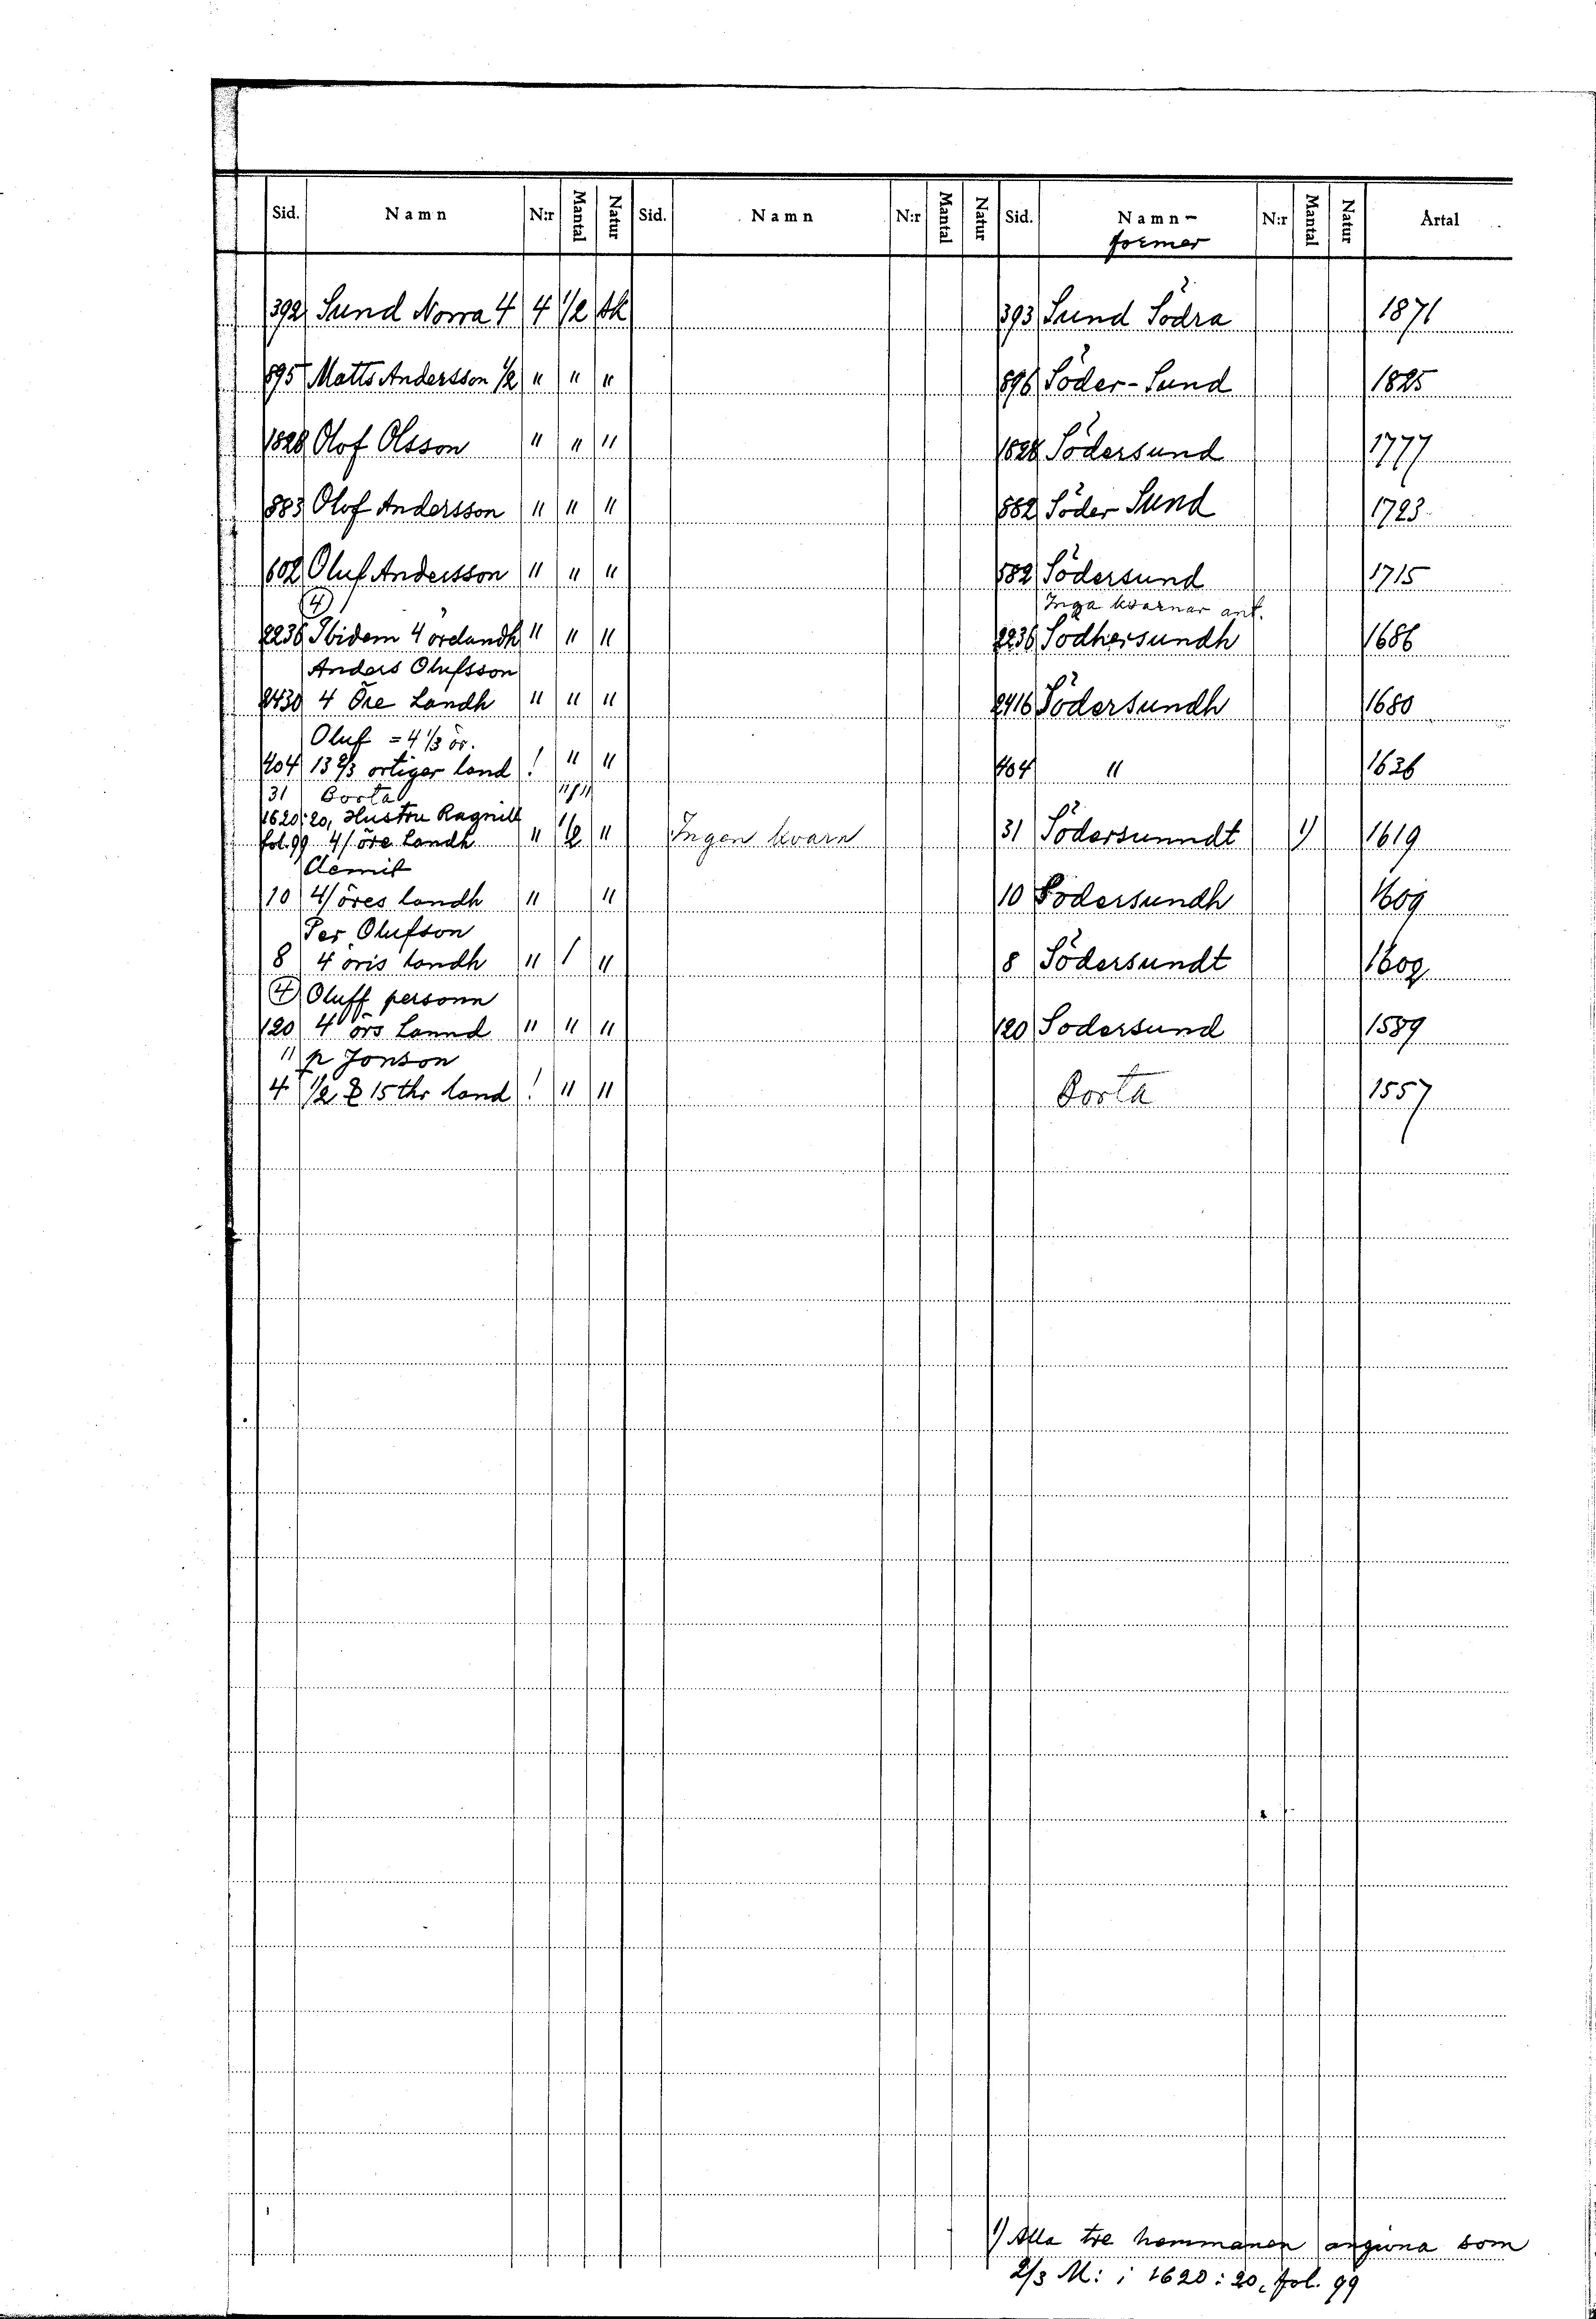 Sid. Namn N:r Mantal Natur Sid. Namn N:r Mantal Natur Sid. Namn- N:r Mantal Natur Årtal
former
392 Sund Norra 4 4 1/2 sk 393 Sund Södra 1871
895 Matts Andersson 1/2 " " " 896 Söder-Sund 1825
1828 Olof Olsson " " " 1828 Södersund 1777
883 Olof Andersson " " " 882 Söder Sund 1723
602 Oluf Andersson " " " 582 Södersund 1715
4 Inga kvarnar ant.
2236 Ibidem 4 örelandh " " " 2236 Södhersundh 1686
Anders Olufsson
2430 4 Öre Landh " " " 2416 Södersundh 1680
Oluf = 4 1/3 ör.
404 13 2/3 örtiger land ! " " 404 " 1636
31 Borta " / "
1620:20, Hustru Ragnill
fol. 99 4/ öre Landh " 1/2 " Ingen kvarn 31 Södersunndt 1) 1619
Clemit
10 4/ öres landh " " 10 Södersundh 1609
Per Olufson
8 4 öris landh " / " 8 Södersundt 1602
4 Oluff personn
120 4 örs Lannd " " " 120 Sodersund 1589
" p Jonson
4 1/2 15 thr land ! " " Borta 1557
1) Alla tre hemmanen angivna som
2/3 M: i 1620:20, fol. 99